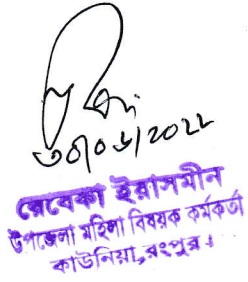 ৩০/০৬/২০২২
রেবেকা ইয়াসমীন
উপজেলা মহিলা বিষয়ক কর্মকর্তা
কাউনিয়া, রংপুর।